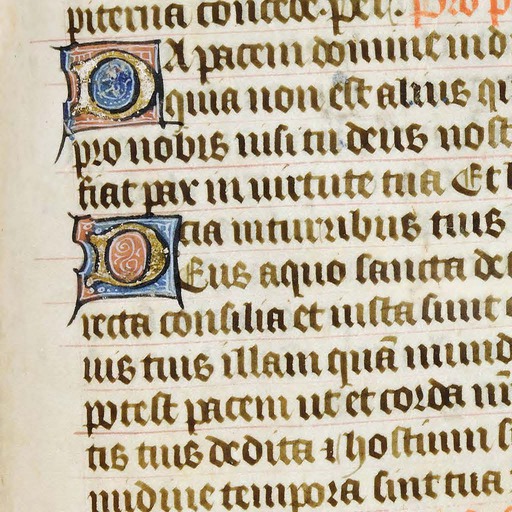 piterna concede. per. Pro p
DA pacem domine in d
quia non est alius qu
pro nobis nisi tu deus nost
fiat pax in uirtute tua Et h
cia in turribus tuis
DEus a quo sancta de
recta consilia et iusta sunt o
uis tuis illam quā mund
potest pacem ut et corda nr̄
tis tuis dedita ⁊ hostium s
midine tempora sint tua